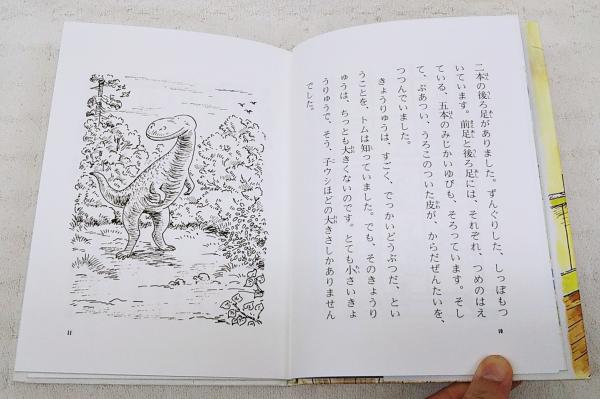 二本の後ろ足がありました。ずんぐりした、しっぽもつ
いています。前足と後ろ足には、それぞれ、つめのはえ
ている、五本のみじかいゆびも、そろっています。そし
て、ぶあつい、うろこのついた皮が、からだぜんたいを、
つつんでいました。
きょうりゅうは、すごく、でっかいどうぶつだ、とい
うことを、トムは知っていました。でも、そのきょうり
ゅうは、ちっとも大きくないのです。とても小さいきょ
うりゅうで、そう、子ウシほどの大きさしかありません
でした。
10
11